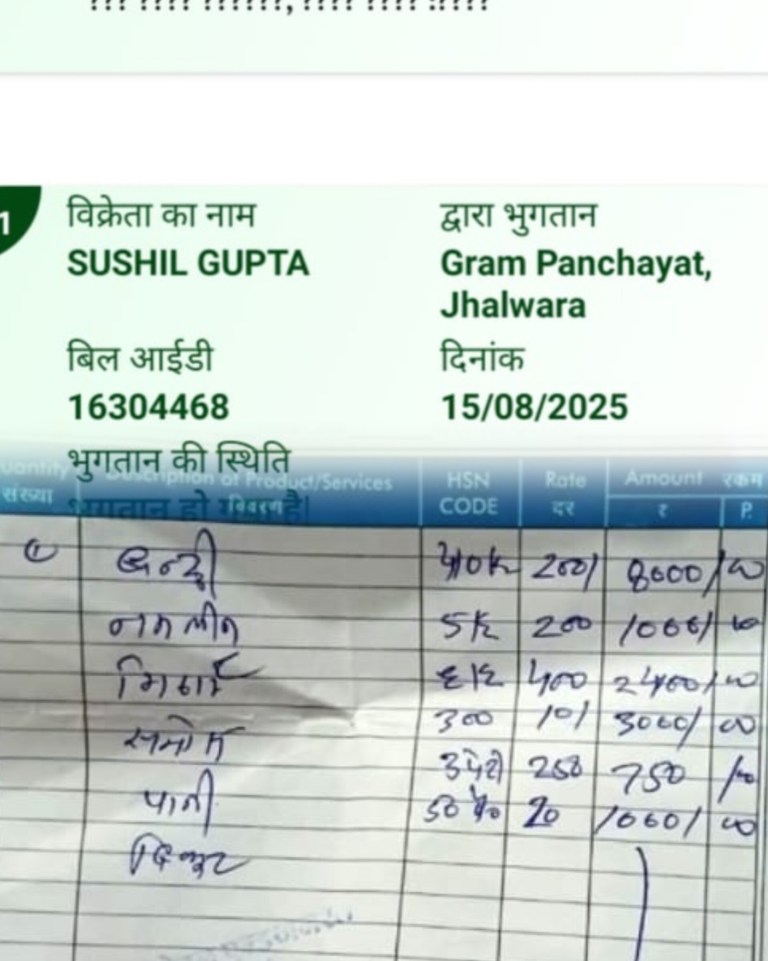 विक्रेता का नाम
SUSHIL GUPTA
द्वारा भुगतान
Gram Panchayat,
Jhalwara
बिल आईडी
16304468
दिनांक
15/08/2025
भुगतान की स्थिति
भुगतान हो गया है।
Quantity Description of Product/Services HSN Rate Amount रकम
संख्या विवरण CODE दर ₹ P.
1
200/ 8000/00
नमकीन 5K 200 1000/00
मिठाई 6K 400 2400/00
समोसा 300 10/ 3000/00
पानी 250 750/00
50 20 1000/00